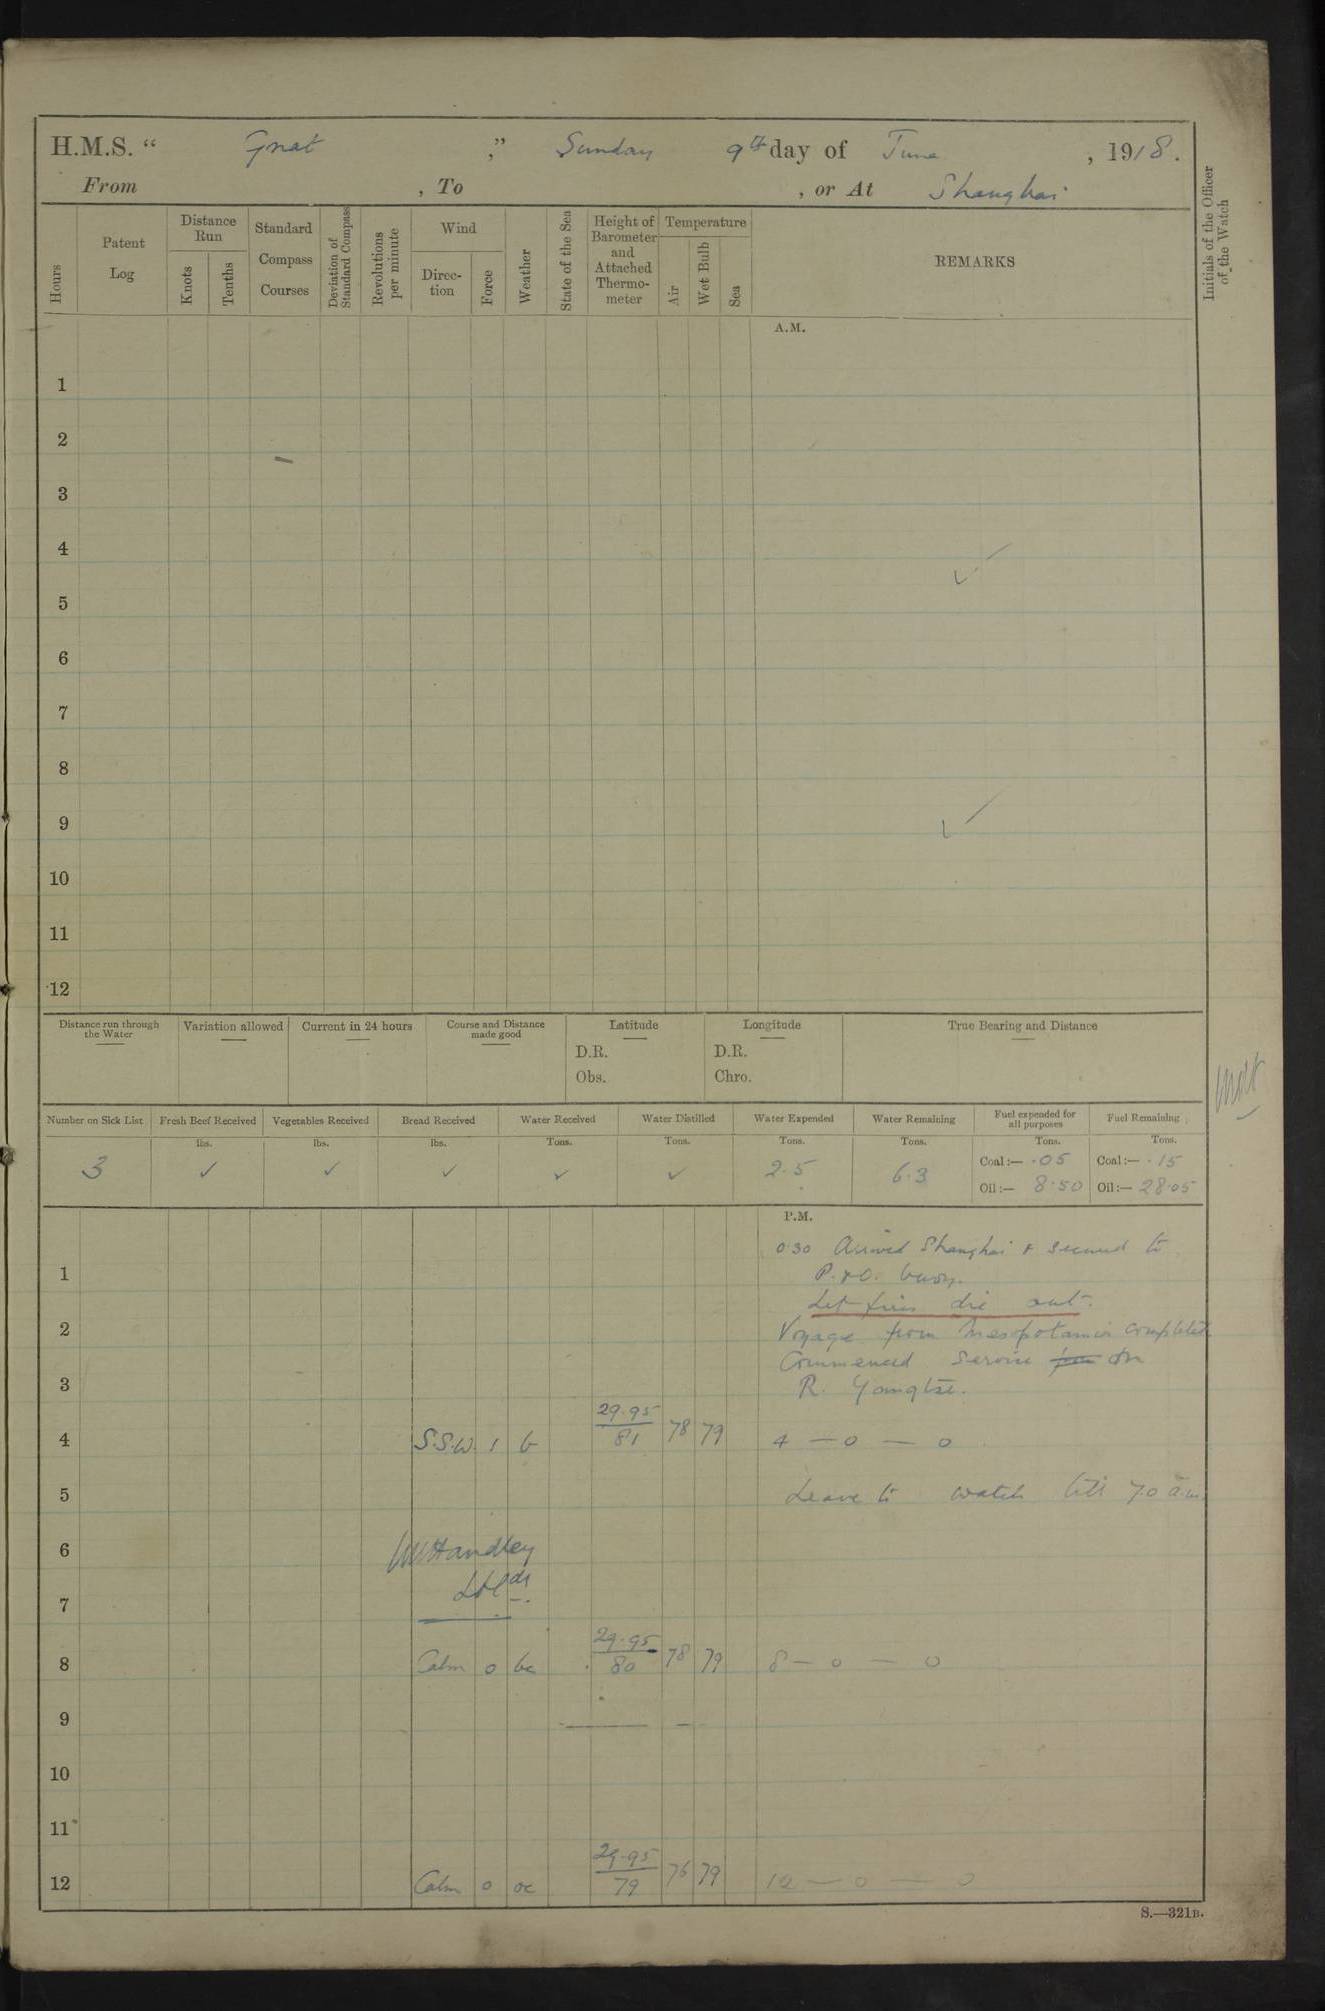 H.M.S. “ Gnat ,” Sunday 9th day of June , 1918.
From , To , or At Shanghai
Hours
Patent Log
Distance Run
Knots
Tenths
Standard Compass Courses
Deviation of Standard Compass
Revolutions per minute
Wind
Direc-tion
Force
Weather
State of the Sea
Height of Barometer and Attached Thermo-meter
Temperature
Air
Wet Bulb
Sea
REMARKS
Initials of the Officer of the Watch
A.M.
1
2
3
4
5
6
7
8
9
10
11
12
Distance run through the Water
Variation allowed
Current in 24 hours
Course and Distance made good
Latitude
D.R.
Obs.
Longitude
D.R.
Chro.
True Bearing and Distance
Number on Sick List
Fresh Beef Received
Vegetables Received
Bread Received
Water Received
Water Distilled
Water Expended
Water Remaining
Fuel expended for all purposes
Fuel Remaining
lbs. lbs. lbs. Tons. Tons. Tons. Tons. Tons. Tons.
3 ✓ ✓ ✓ ✓ ✓ 2.5 6.3
Coal:— .05 Coal:— .15
Oil:— 8.50 Oil:— 28.05
P.M.
0.30 Arrived Shanghai & secured to
1 P. & O. buoy.
Let fires die out.
2 Voyage from Mesopotamia completed
Commenced service from on
3 R. Yangtse.
4 S.S.W. 1 b 29.95 81 78 79 4 — 0 — 0
5 Leave to watch till 7.0 a.m.
6 Handley
7
8 Calm 0 bc 29.95 80 78 79 8 — 0 — 0
9
10
11
12 Calm 0 oc 29.95 79 76 79 12 — 0 — 0
S.—321B.